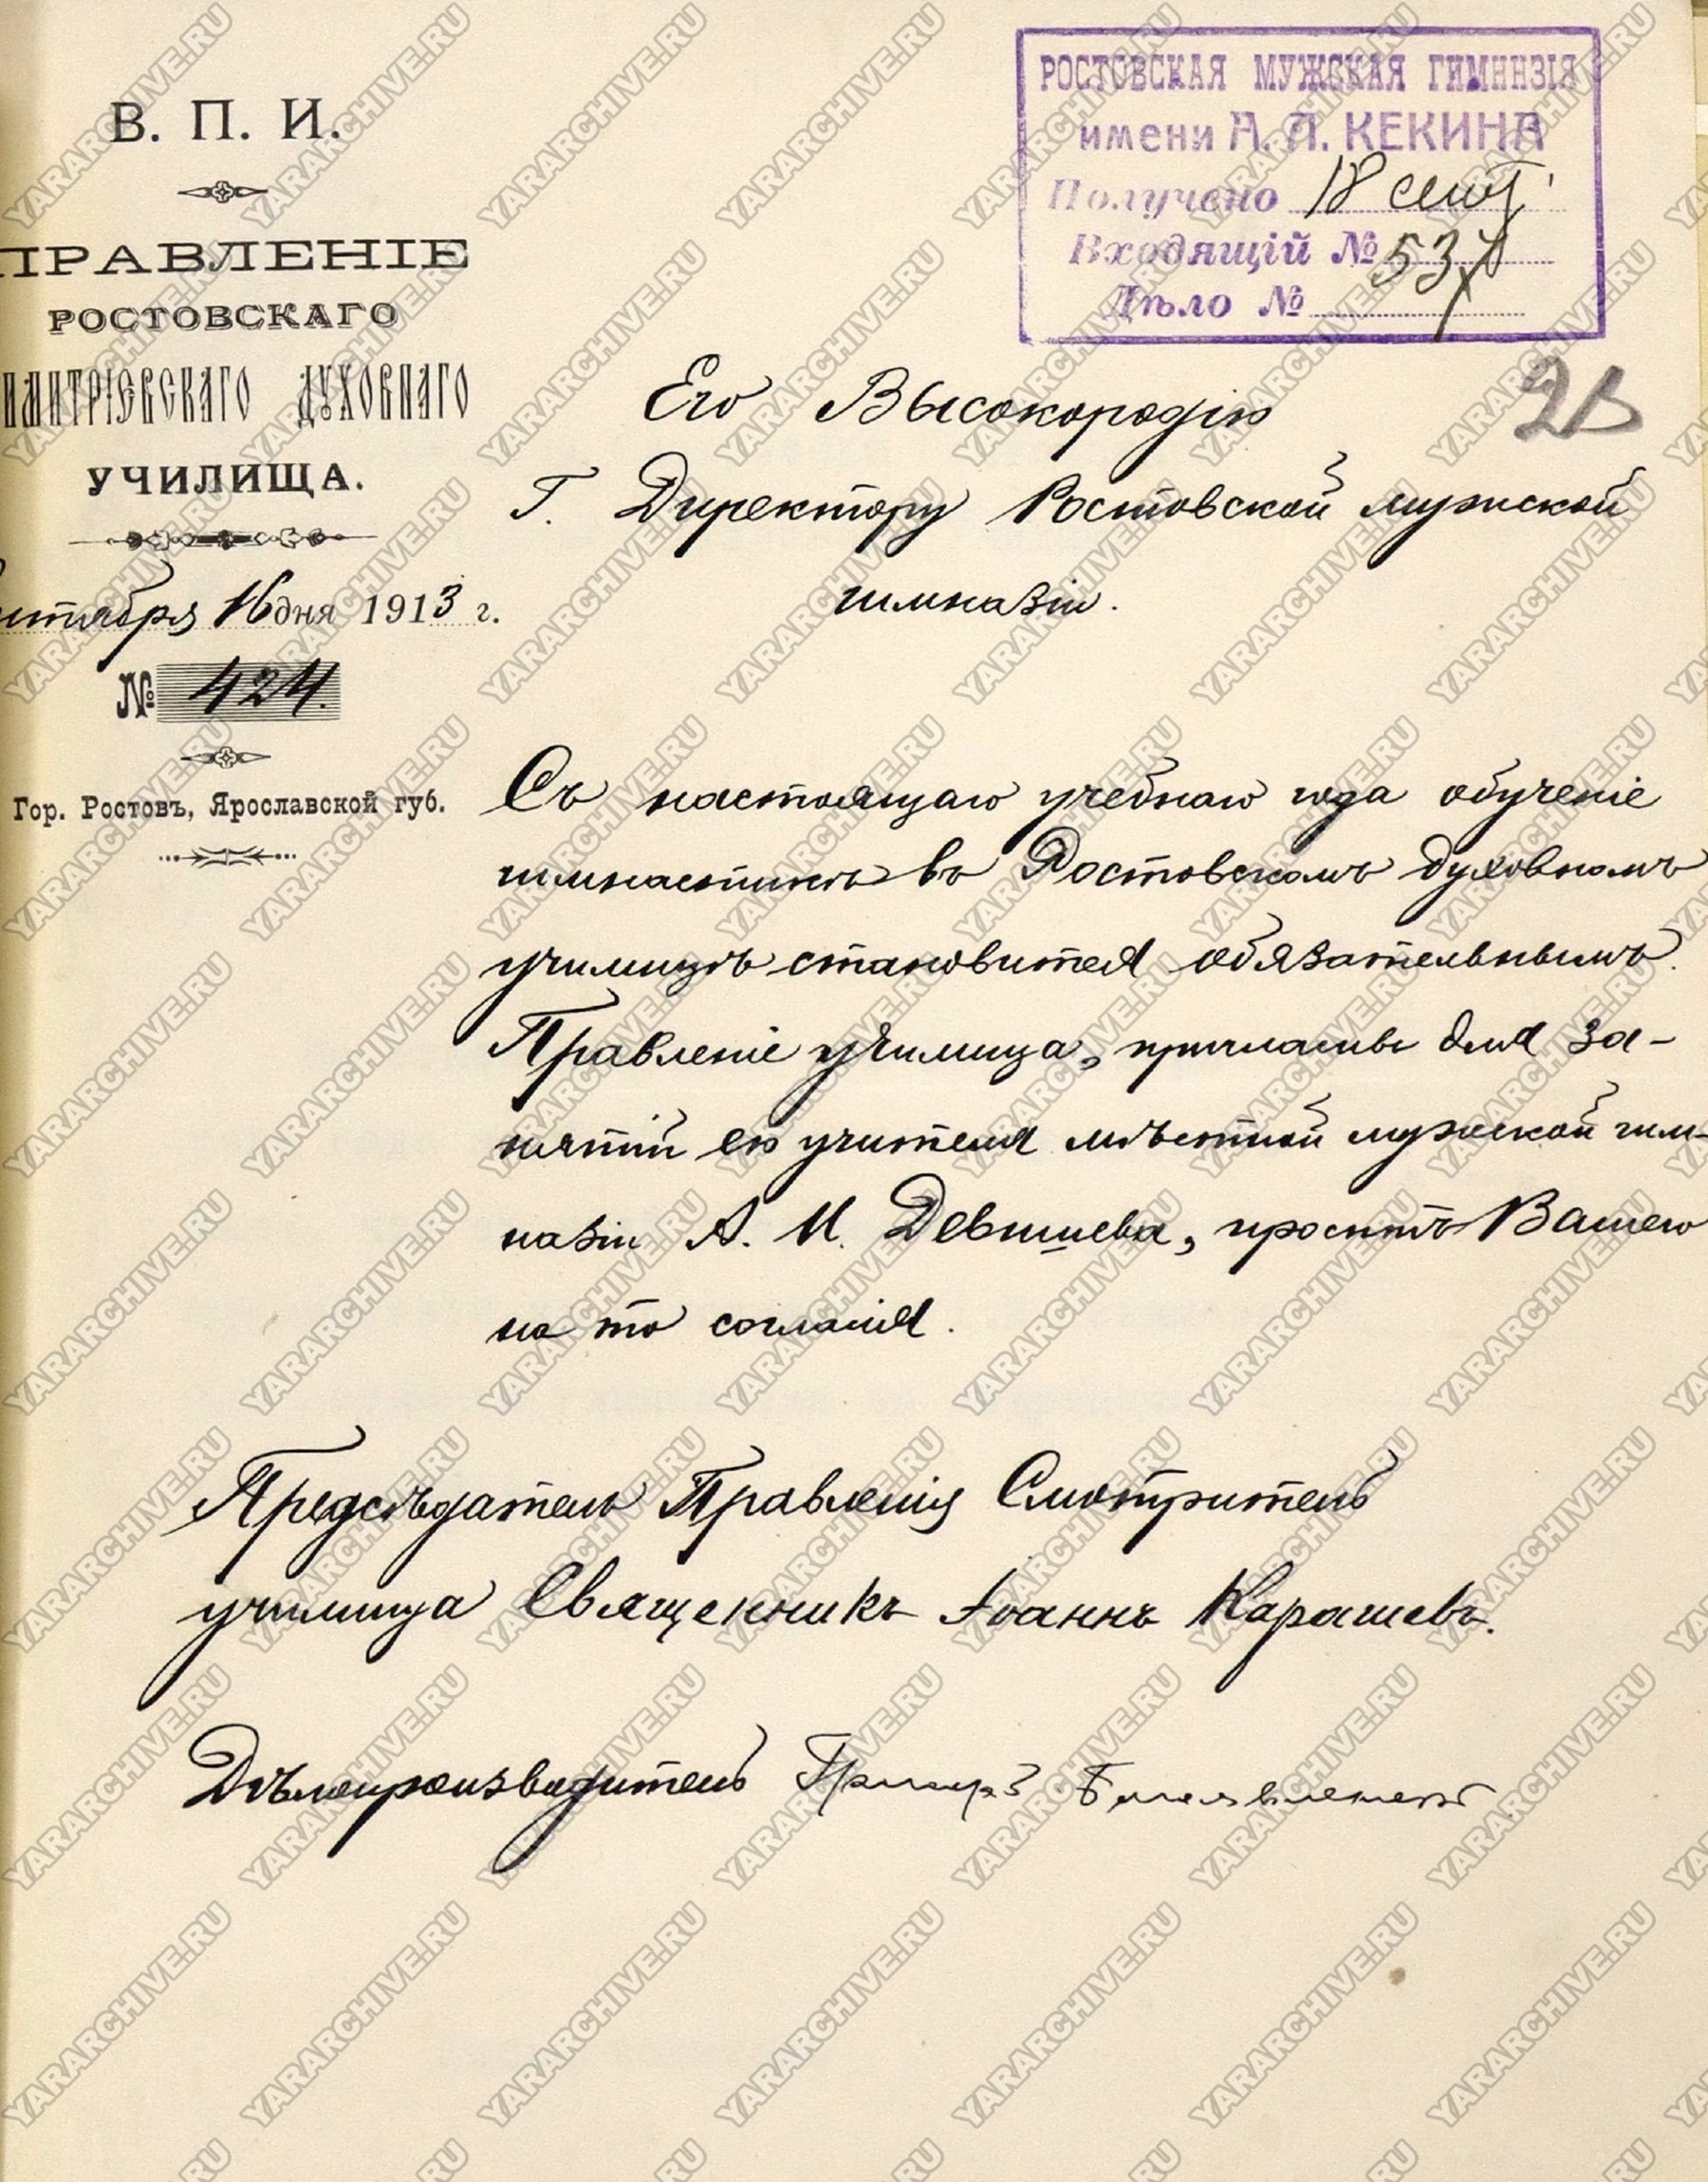 В. П. И.
ПРАВЛЕНІЕ
РОСТОВСКАГО
ИМИТРІЕВСКАГО ДУХОВНАГО
УЧИЛИЩА.
нтября 16 дня 1913 г.
№ 424.
Гор. Ростовъ, Ярославской губ.
РОСТОВСКАЯ МУЖСКАЯ ГИМНАЗІЯ
имени А. Л. КЕКИНА
Получено 18 сент.
Входящій №
Дѣло №
Его Высокородію
Г. Директору Ростовской мужской
гимназіи.
Съ настоящаго учебнаго года обученіе
гимнастикѣ въ Ростовскомъ духовномъ
училищѣ становится обязательнымъ.
Правленіе училища, пригласивъ для за-
нятій ею учителя мѣстной мужской гим-
назіи А. И. Девишева, проситъ Вашего
на то согласія.
Предсѣдатель Правленія Смотритель
училища Священникъ Іоаннъ Карашевъ.
Дѣлопроизводитель